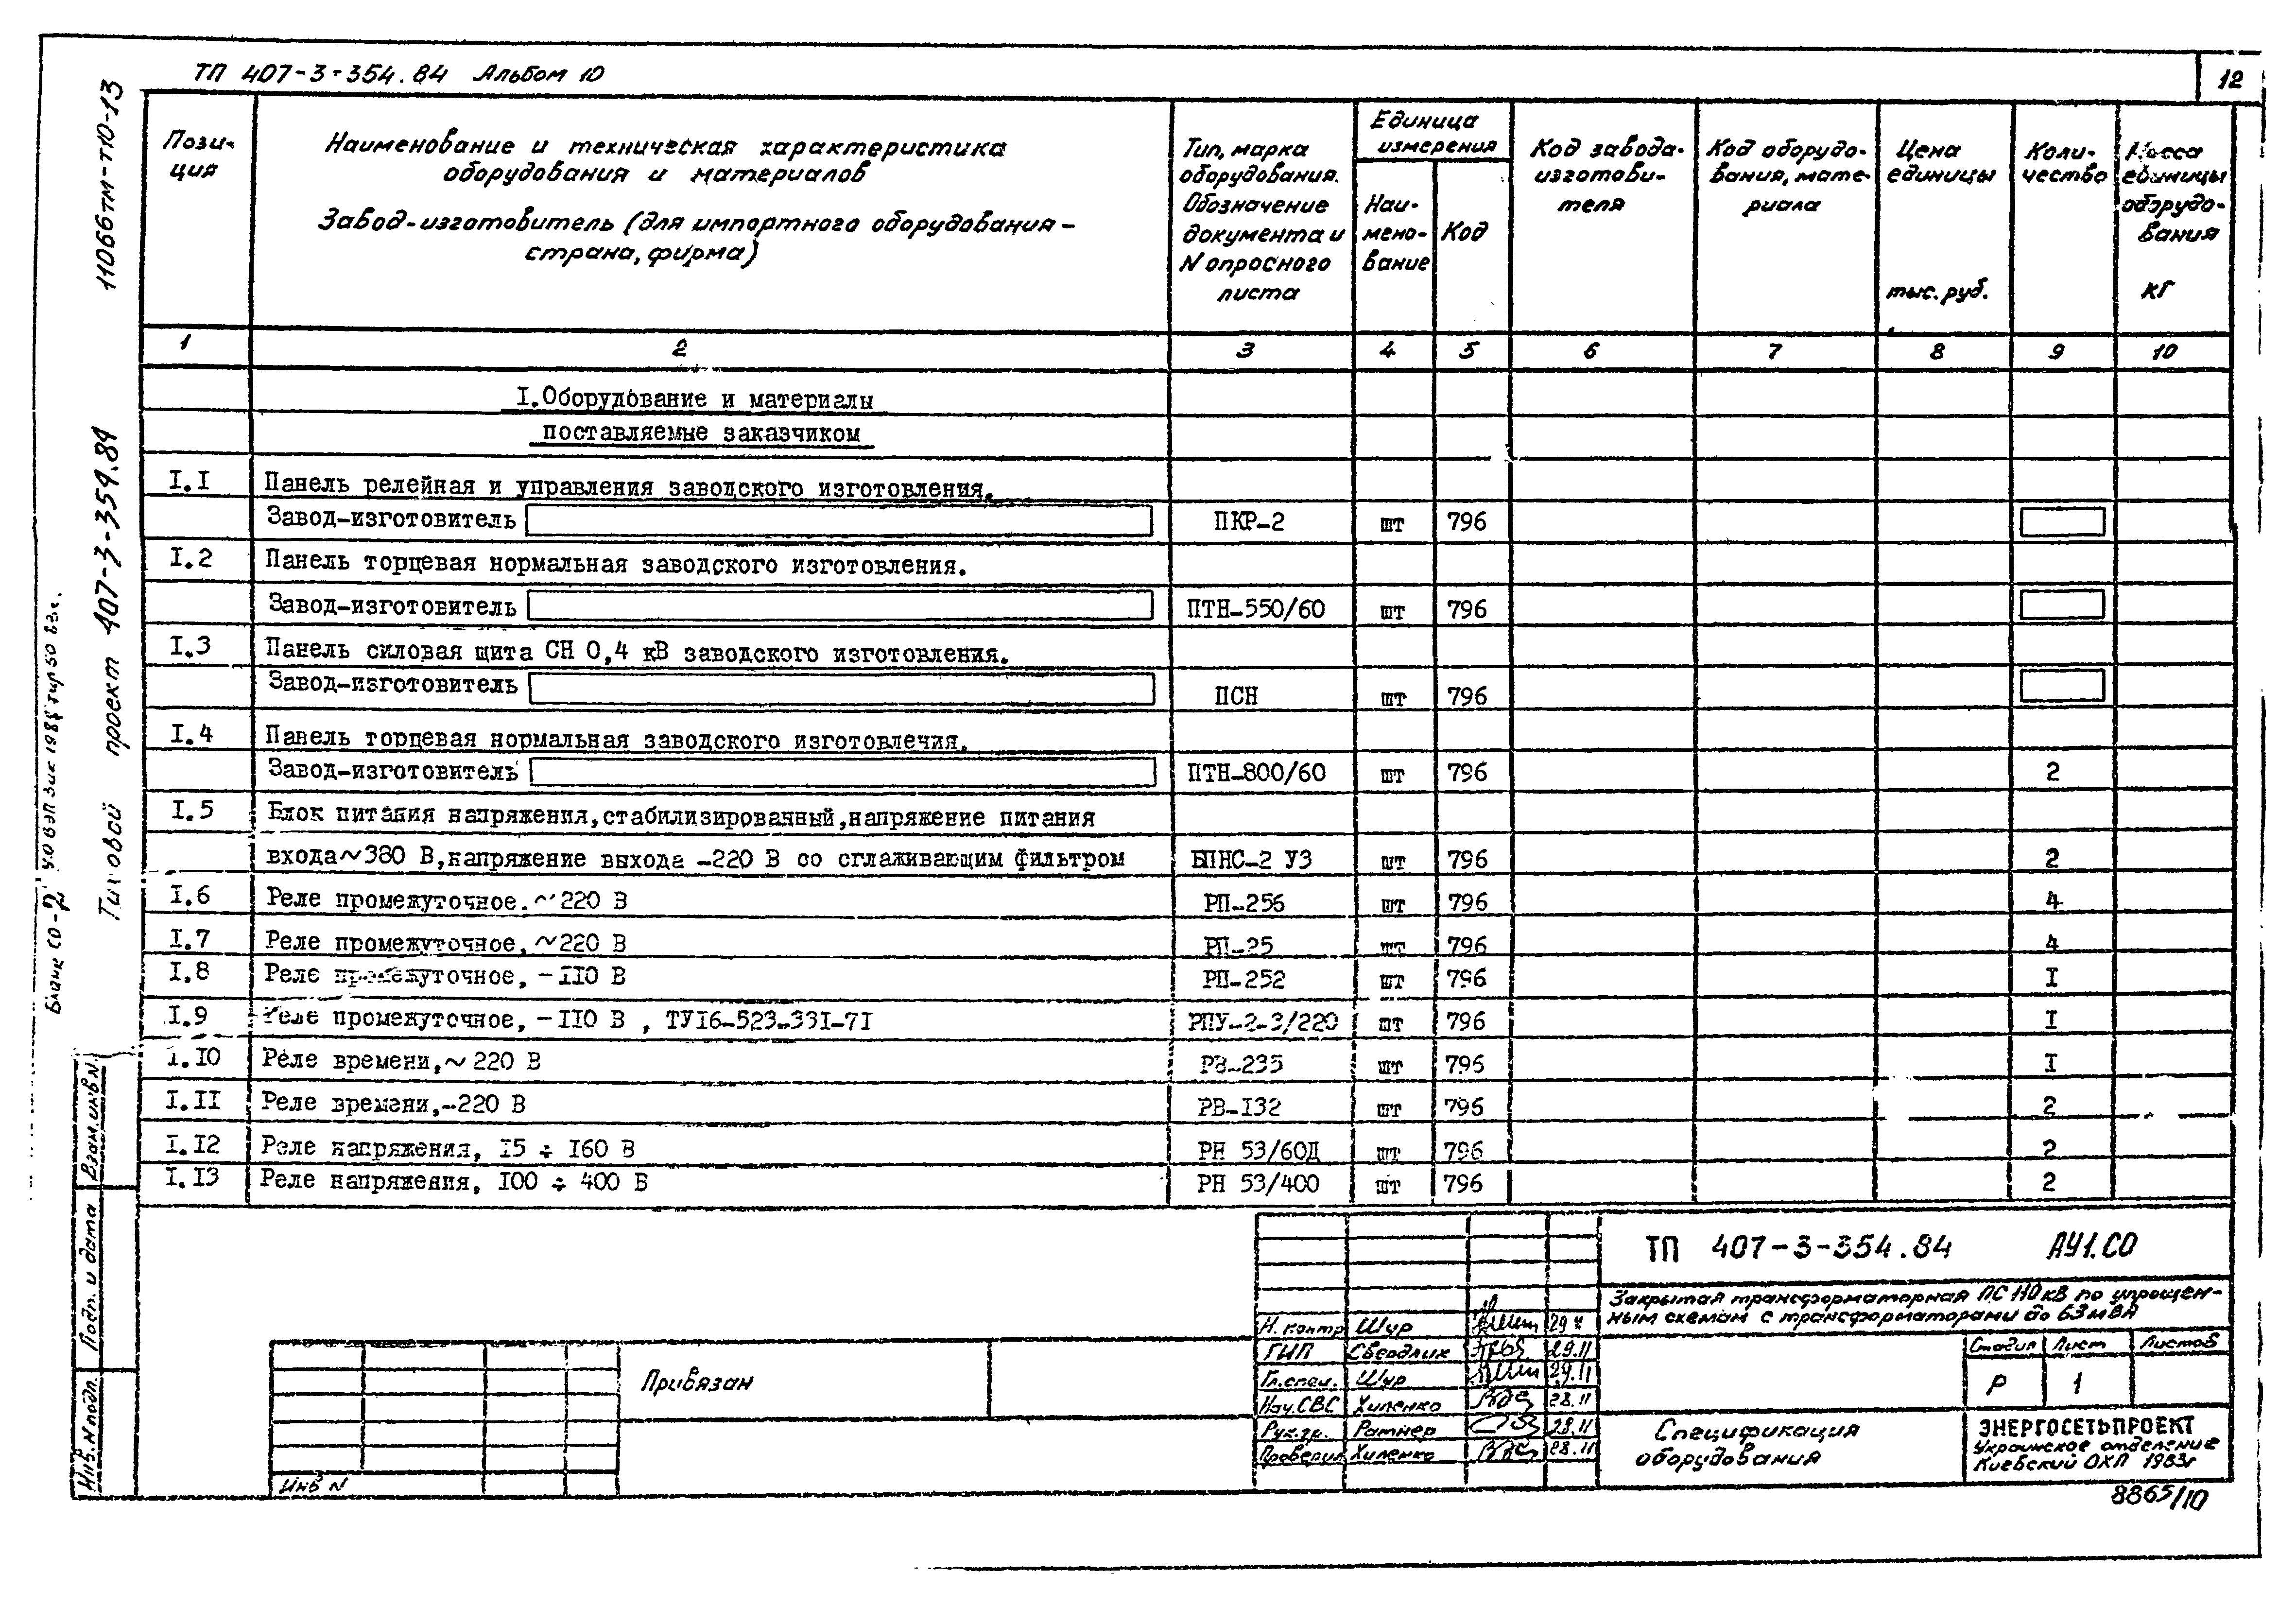 ТП 407-3-354.84 Альбом 10
12
11066тм-т10-13
Типовой проект 407-3-354.84
Бланк СО-2
Пози-
ция
Наименование и техническая характеристика
оборудования и материалов
Завод-изготовитель (для импортного оборудования -
страна, фирма)
Тип, марка
оборудования.
Обозначение
документа и
N опросного
листа
Единица
измерения
Наи-
мено-
вание
Код
Код завода-
изготови-
теля
Код оборудо-
вания, мате-
риала
Цена
единицы
тыс. руб.
Коли-
чество
Масса
единицы
оборудо-
вания
кг
1 2 3 4 5 6 7 8 9 10
I.Оборудование и материалы
поставляемые заказчиком
I.I Панель релейная и управления заводского изготовления.
Завод-изготовитель ПКР-2 шт 796
I.2 Панель торцевая нормальная заводского изготовления.
Завод-изготовитель ПТН-550/60 шт 796
I.3 Панель силовая щита СН 0,4 кВ заводского изготовления.
Завод-изготовитель ПСН шт 796
I.4 Панель торцевая нормальная заводского изготовления.
Завод-изготовитель ПТН-800/60 шт 796 2
I.5 Блок питания напряжения,стабилизированный,напряжение питания
входа~380 В,напряжение выхода -220 В со сглаживающим фильтром БПНС-2 У3 шт 796 2
I.6 Реле промежуточное.~220 В РП-256 шт 796 4
I.7 Реле промежуточное, ~220 В РП-25 шт 796 4
I.8 Реле промежуточное, -II0 В РП-252 шт 796 I
I.9 Реле промежуточное, -II0 В , ТУ16-523-33I-7I РПУ-2-3/220 шт 796 I
I.I0 Реле времени,~ 220 В РВ-235 шт 796 I
I.II Реле времени,-220 В РВ-I32 шт 796 2
I.I2 Реле напряжения, I5 ÷ I60 В РН 53/60Д шт 796 2
I.I3 Реле напряжения, I00 ÷ 400 В РН 53/400 шт 796 2
Взам.инв N
Подп. и дата
Инв. N подл.
Привязан
Инв N
ТП 407-3-354.84 АУ1.СО
Закрытая трансформаторная ПС 110 кВ по упрощен-
ным схемам с трансформаторами до 63 мВА
Н. контр Шур
ГИП Свердлик 29.11
Гл.спец. Шур 29.11
Нач.СВС Хиленко 28.11
Рук.гр. Ратнер 28.11
Проверил Хиленко 28.11
Стадия Лист Листов
Р 1
Спецификация
оборудования
ЭНЕРГОСЕТЬПРОЕКТ
Украинское отделение
Киевский ОКП 1983г
8865/10